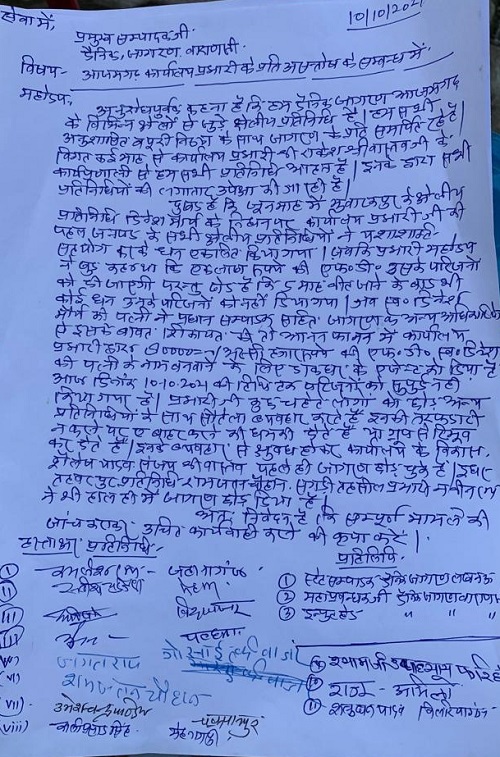 सेवा में,
10/10/2021
प्रमुख सम्पादक जी
दैनिक जागरण वाराणसी
विषय- आजमगढ़ कार्यालय प्रभारी के प्रति असन्तोष के सम्बन्ध में
महोदय,
अनुरोधपूर्वक कहना है कि हम दैनिक जागरण आजमगढ़
के विभिन्न क्षेत्रों से जुड़े क्षेत्रीय प्रतिनिधि हैं। हम सभी
अनुशासित व पूरी निष्ठा के साथ जागरण के प्रति समर्पित रहे हैं।
विगत कई माह से कार्यालय प्रभारी श्री राकेश श्रीवास्तव जी के
कार्यप्रणाली से हम सभी प्रतिनिधि आहत हैं। इनके द्वारा सभी
प्रतिनिधियों की लगातार उपेक्षा की जा रही है।
दुखद है कि जून माह में मुबारकपुर के क्षेत्रीय
प्रतिनिधि दिनेश मौर्य के निधन पर कार्यालय प्रभारी जी की
पहल जनपद के सभी क्षेत्रीय प्रतिनिधियों ने यथाशक्ति
सहयोग करके धन एकत्रित किया गया। जबकि प्रभारी महोदय
ने खुद कहा था कि एक लाख रुपये की एफ०डी० उसके परिजनों
को दी जाएगी परन्तु खेद है कि 5 माह बीत जाने के बाद भी
कोई धन उनके परिजनों को नहीं दिया गया। जब स्व० दिनेश
मौर्य की पत्नी ने प्रधान सम्पादक सहित जागरण के अन्य अधिकारियों
से इसके बावत शिकायत की तो आनन फानन में कार्यालय
प्रभारी द्वारा 80000=/ अस्सी हजार रुपये की एफ०डी० स्व० दिनेश
की पत्नी के नाम बनवाने के लिए डाकघर के एजेन्ट को दिया है
आज दिनांक 10-10-2021 की तिथि तक परिजनों को सुपुर्द नहीं
किया गया है। प्रभारी जी कुछ चहेते लोगों को छोड़ अन्य
प्रतिनिधियों के साथ सौतेला व्यवहार करते हैं। इनकी तरफदारी
न करने पर ए बाहर करने की धमकी देते हैं या ग्रुप से रिमूव
कर देते हैं। इनके व्यवहार से क्षुब्ध होकर कार्यालय के विकास,
शैलेष यादव संजय श्रीवास्तव पहले ही जागरण छोड़ चुके हैं। इधर
तहबरपुर प्रतिनिधि रामजतन चौहान, सगड़ी तहसील प्रभारी नवीन
ने भी हाल ही में जागरण छोड़ दिया है।
अतः निवेदन है कि सम्पूर्ण मामले की
जांच कराकर उचित कार्यवाही करने की कृपा करें।
हस्ताक्षर प्रतिनिधि-
प्रतिलिपि-
① स्टेट सम्पादक दैनिक जागरण लखनऊ
② महाप्रबन्धक जी दैनिक जागरण वाराणसी
③ इनपुट हेड " "
जहानागंज
पल्हना
जगत राम
गोसाई की बाजार
रामजतन चौहान